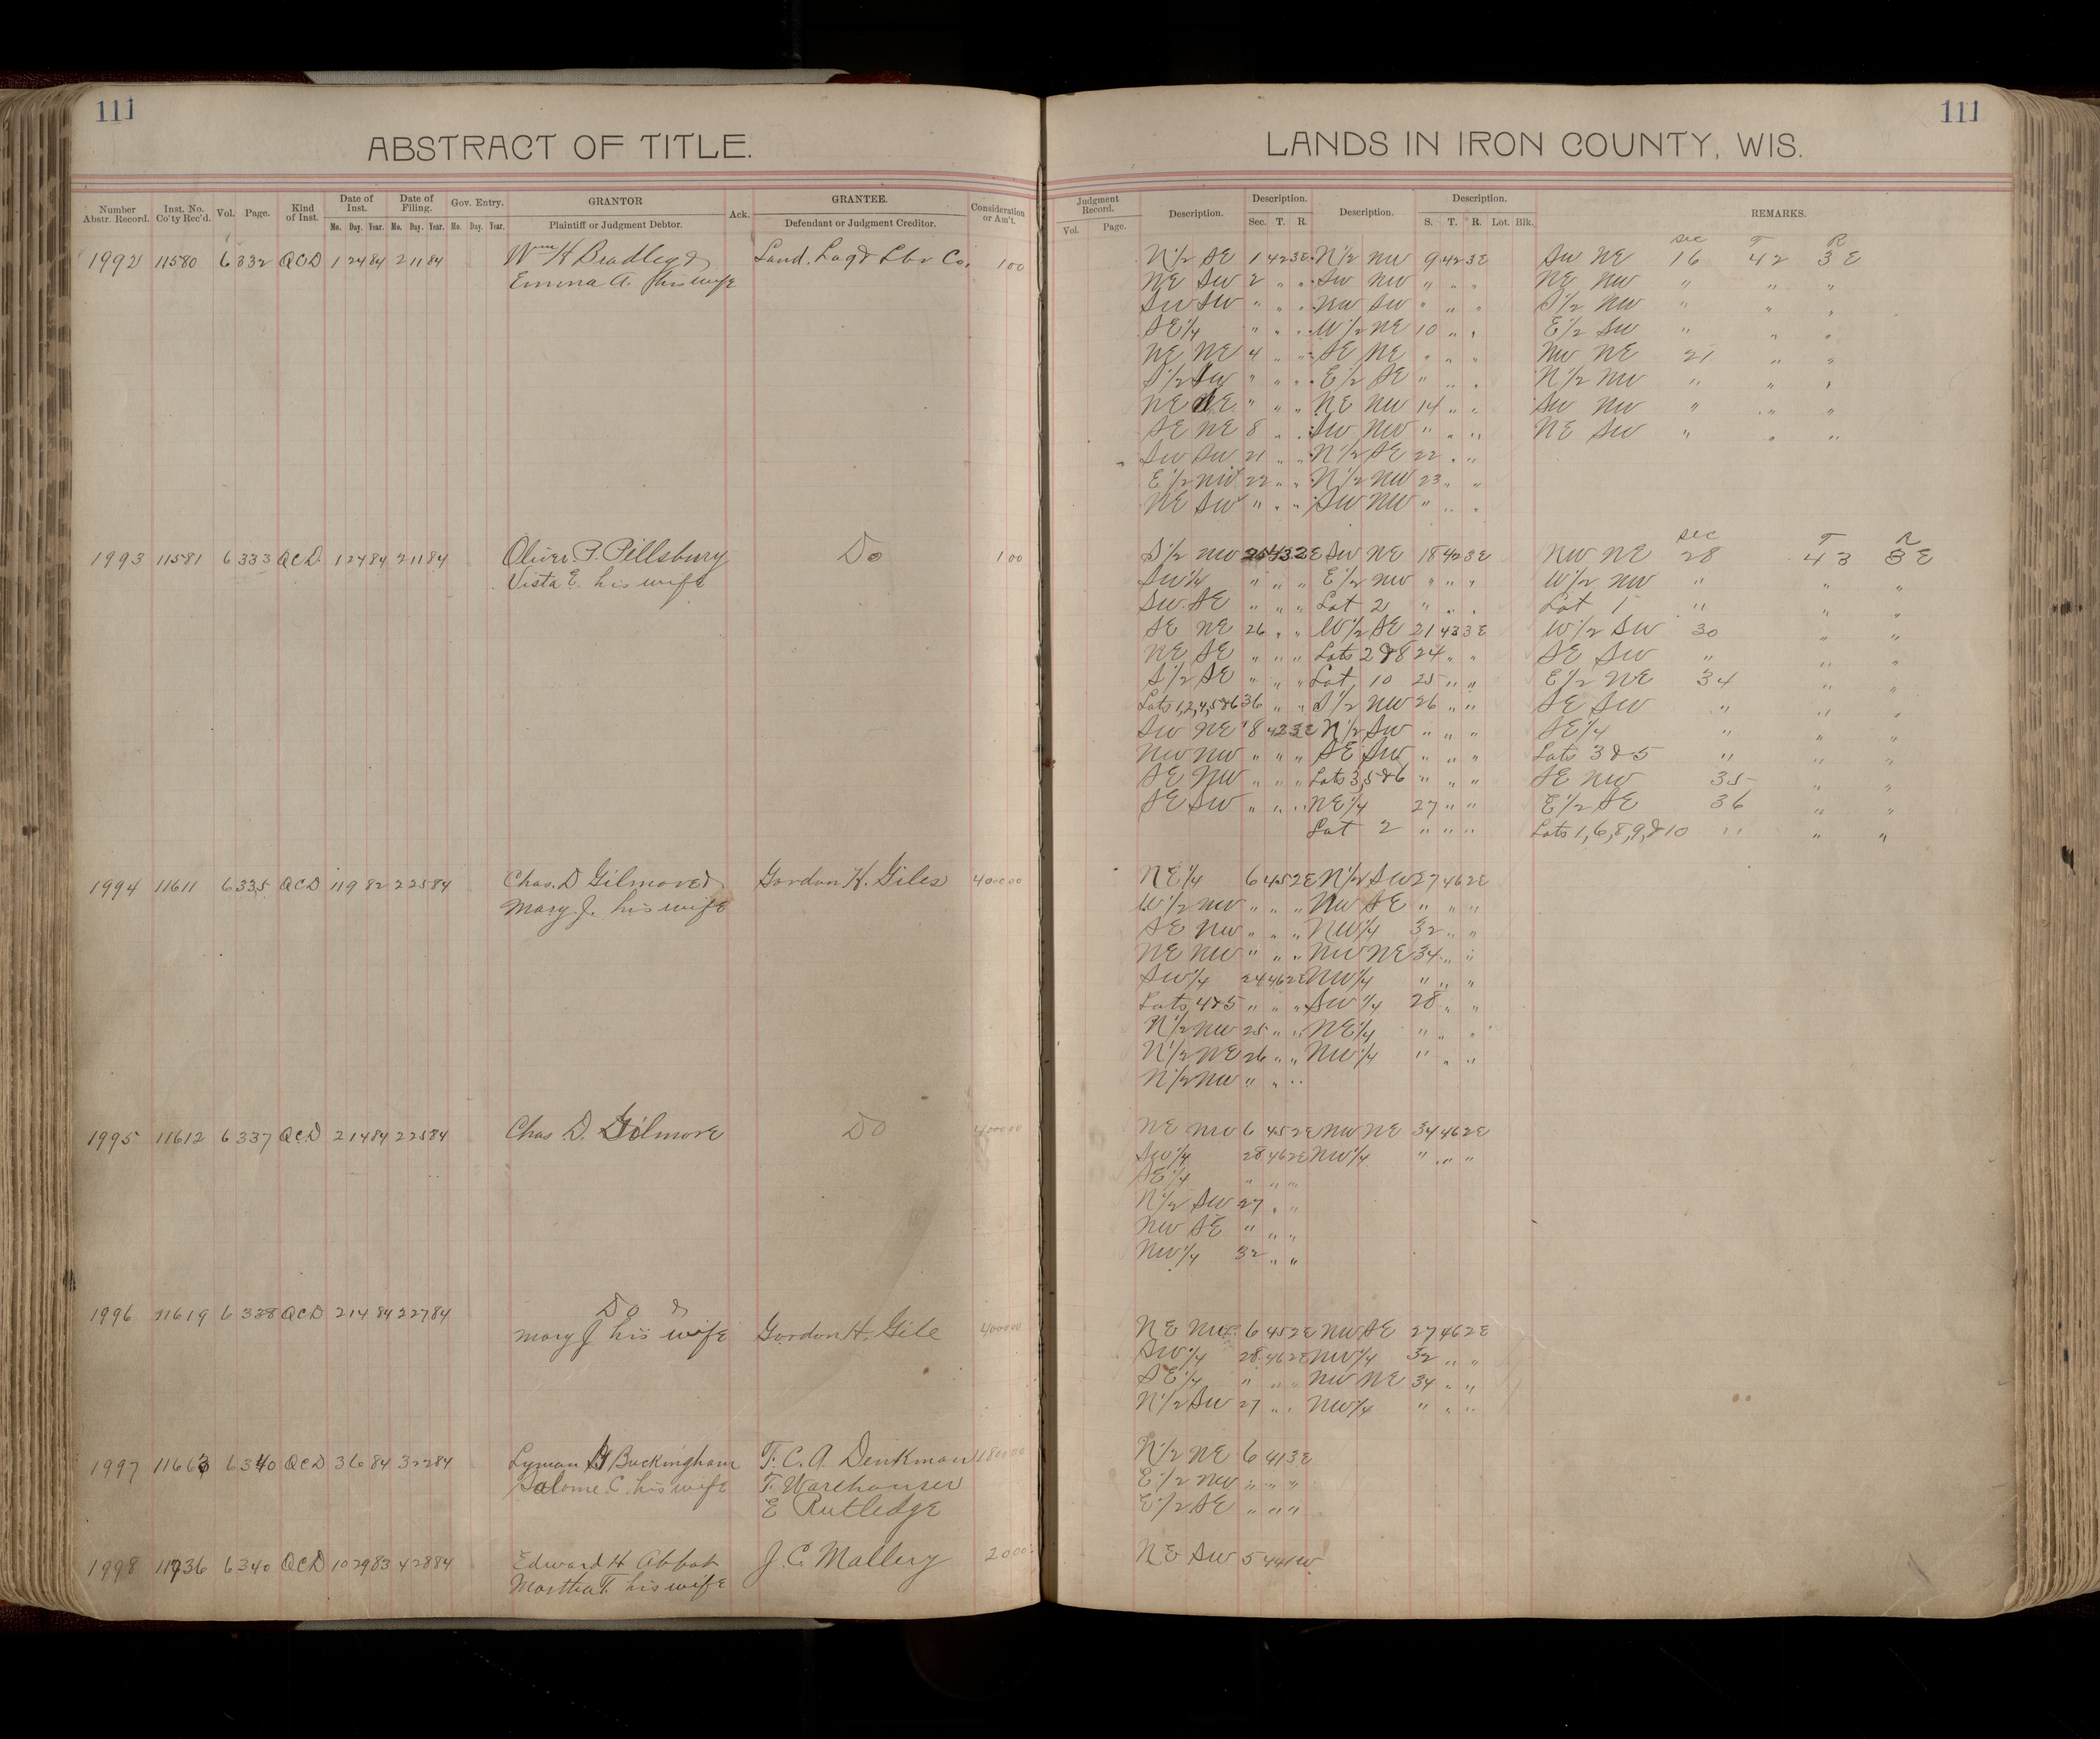 111
ABSTRACT OF TITLE.
Number Abstr. Record. Inst. No. Co'ty Rec'd. Vol. Page. Kind of Inst. Date of Inst. Date of Filing. Gov. Entry. GRANTOR Ack. GRANTEE. Consideration or Am't.
Mo. Day. Year. Mo. Day. Year. Mo. Day. Year. Plaintiff or Judgment Debtor. Defendant or Judgment Creditor.
1992 11580 6 332 QCD 1 24 84 2 11 84 Wm H Bradley & Land. Log & Lbr Co. 1 00
Emma A. his wife
1993 11581 6 333 QCD. 1 24 84 2 11 84 Oliver P. Pillsbury Do 1 00
Vista E. his wife
1994 11611 6 335 QCD 11 9 82 2 25 84 Chas. D Gilmore & Gordon H. Giles 4000 00
Mary J. his wife
1995 11612 6 337 QCD 2 14 84 2 25 84 Chas D. Gilmore Do 4000 00
1996 11619 6 338 QCD 2 14 84 2 27 84 Do &
Mary J his wife Gordon H. Gile 4000 00
1997 11663 6 340 QCD 3 6 84 3 22 84 Lyman Buckingham F. C. A. Denkman 1180 00
Salome C. his wife F. Warehauser
E Rutledge
1998 11736 6 340 QCD 10 29 83 4 28 84 Edward H Abbot J. C. Mallery 20 00
Martha T. his wife
111
LANDS IN IRON COUNTY, WIS.
Judgment Record. Description. Description. Description. Description. REMARKS.
Vol. Page. Sec. T. R. S. T. R. Lot. Blk.
Sec T R
N 1/2 SE 1 42 3E N 1/2 NW 9 42 3E SW NE 16 42 3E
NE SW 2 " " SW NW " " " NE NW " " "
SW SW " " " NW SW " " " S 1/2 NW " " "
SE 1/4 " " " W 1/2 NE 10 " " E 1/2 SW " " "
NE NE 4 " " SE NE " " " NW NE 21 " "
S 1/2 SW " " " E 1/2 SE " " " N 1/2 NW " " "
NE NE " " " NE NW 14 " " SW NW " " "
SE NE 8 " " SW NW " " " NE SW " " "
SW SW 21 " " N 1/2 SE 22 " "
E 1/2 NW 22 " " N 1/2 NW 23 " "
NE SW " " " SW NW " " "
Sec T R
S 1/2 NW 25 43 2E SW NE 18 42 3E NW NE 28 43 3E
SW 1/4 " " " E 1/2 NW " " " W 1/2 NW " " "
SW. SE " " " Lot 2 " " " Lot 1 " " "
SE NE 26 " " W 1/2 SE 21 43 3E W 1/2 SW 30 " "
NE SE " " " Lots 2 & 8 24 " " SE SW " " "
S 1/2 SE " " " Lot 10 25 " " E 1/2 NE 34 " "
Lots 1, 2, 4, 5 & 6 36 " " S 1/2 NW 26 " " SE SW " " "
SW NE 18 42 3E N 1/2 SW " " " SE 1/4 " " "
NW NW " " " SE SW " " " Lots 3 & 5 " " "
SE NW " " " Lots 3, 5 & 6 " " " SE NW 35 " "
SE SW " " " NE 1/4 27 " " E 1/2 SE 36 " "
Lot 2 " " " Lots 1, 6, 8, 9, & 10 " " "
NE 1/4 6 45 2E N 1/2 SW 27 46 2E
W 1/2 NW " " " NW SE " " "
SE NW " " " NW 1/4 32 " "
NE NW " " " NW NE 34 " "
SW 1/4 24 46 2E NW 1/4 " " "
Lots 4 & 5 " " " SW 1/4 28 " "
N 1/2 NW 25 " " NE 1/4 " " "
N 1/2 NE 26 " " NW 1/4 " " "
N 1/2 NW " " "
NE NW 6 45 2E NW NE 34 46 2E
SW 1/4 28 46 2E NW 1/4 " " "
SE 1/4 " " "
N 1/2 SW 27 " "
NW SE " " "
NW 1/4 32 " "
NE NW 6 45 2E NW SE 27 46 2E
SW 1/4 28 46 2E NW 1/4 32 " "
SE 1/4 " " " NW NE 34 " "
N 1/2 SW 27 " " NW 1/4 " " "
N 1/2 NE 6 41 3E
E 1/2 NW " " "
E 1/2 SE " " "
NE SW 5 44 1W